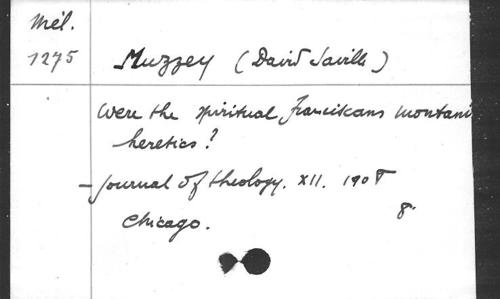 Mél.
1275
Muzzey (David Saville)
Were the spiritual franciscans montani
heretics?
– Journal of theology. XII. 1908
8°
Chicago.